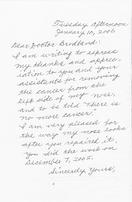 Tuesday afternoon
January 10, 2006
Dear Doctor
I am writing to express
my thanks and appre-
ciation to you and your
assistants for removing
the cancer from the
left side of my nose,
and to be told there is
no more cancer.
I am very pleased for
the way my nose looks
after you repaired it.
You did the work on
December 7, 2005.
Sincerely Yours,